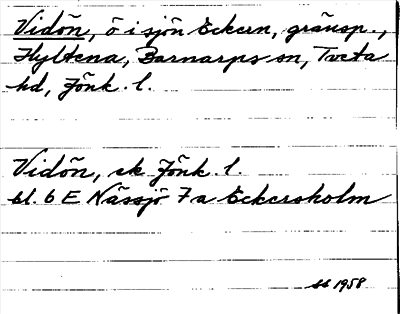 Vidön, ö i sjön Eckern, gränsp.,
Hyltena, Barnarps sn, Tveta
hd, Jönk. l.
Vidön, ek Jönk. l.
bl. 6 E Nässjö 7 a Eckersholm
bb 1958